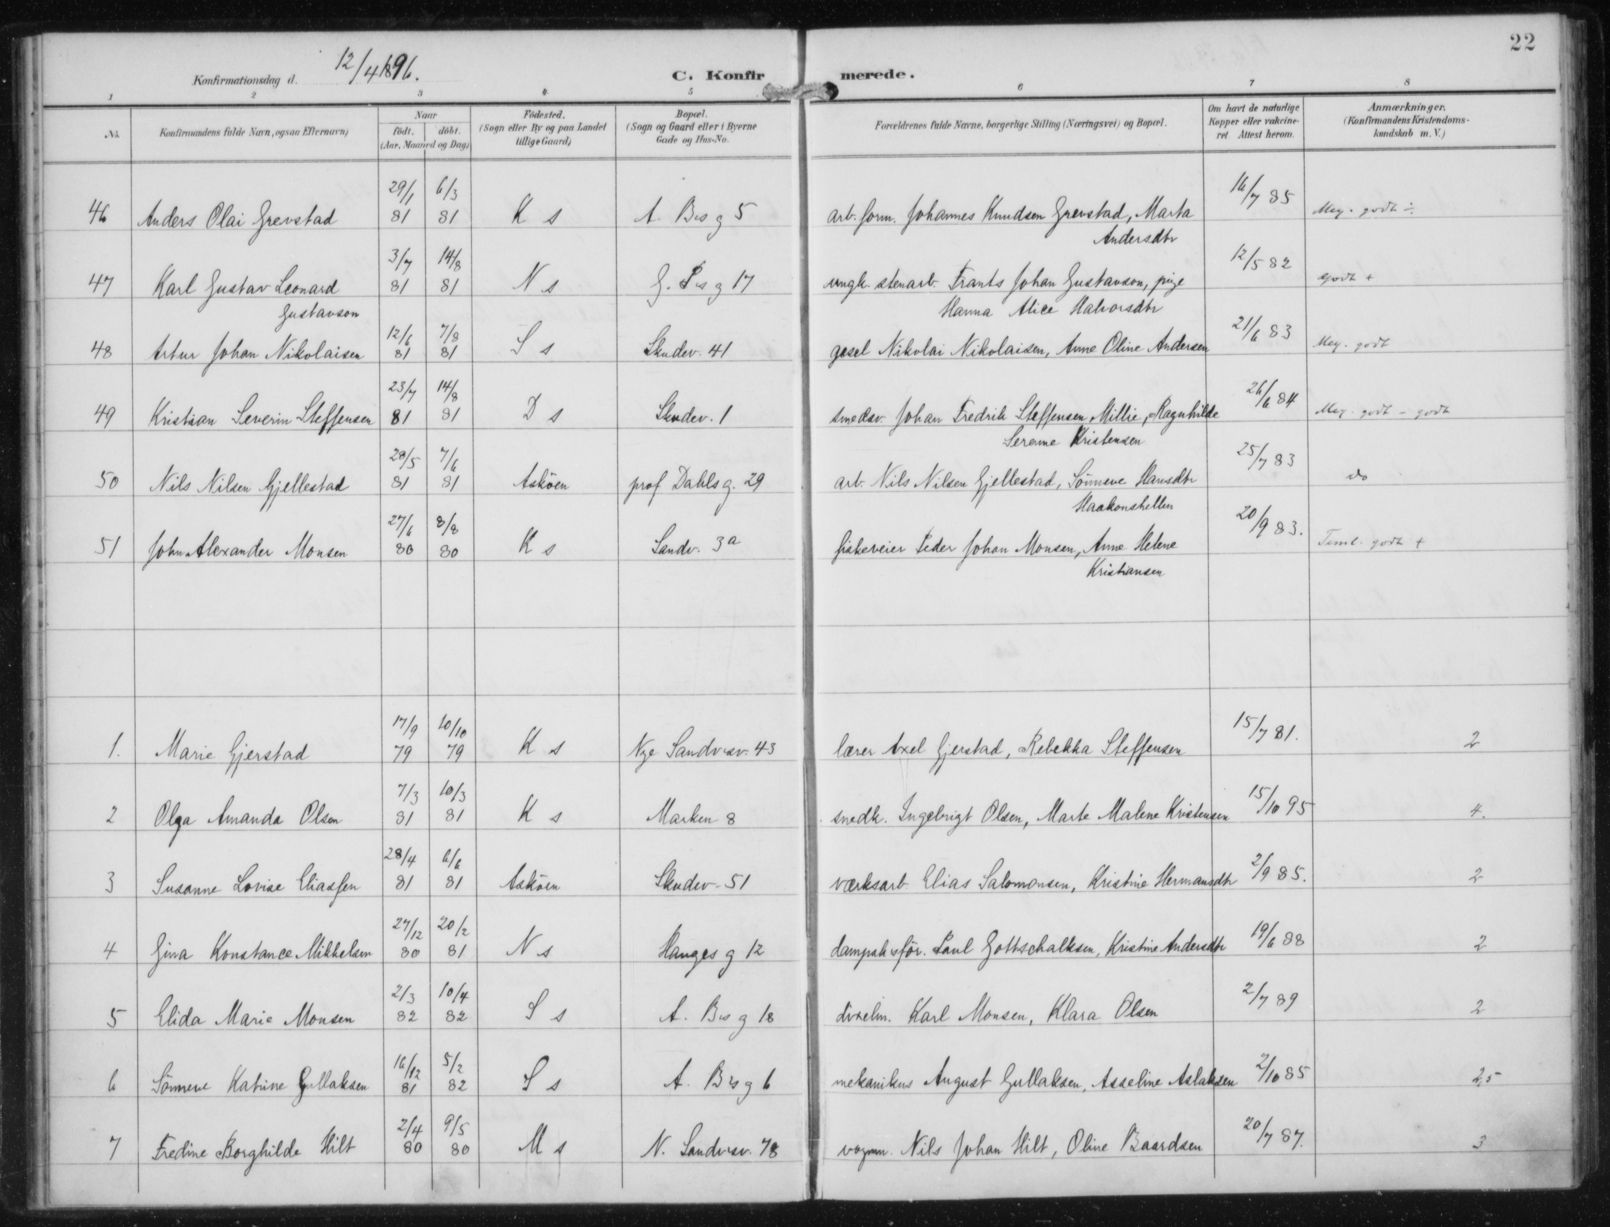 22
Konfirmationsdag d. 12/4 1896. C. Konfirmerede.
1 2 3 4 5 6 7 8
No. Konfirmandens fulde Navn, ogsaa Efternavn) Naar født. døbt. (Aar, Maaned og Dag) Fødested. (Sogn eller By og paa Landet tillige Gaard) Bopæl. (Sogn og Gaard eller i Byerne Gade og Hus-No. Forældrenes fulde Navne, borgerlige Stilling (Næringsvei) og Bopæl. Om havt de naturlige Kopper eller vakcineret Attest herom. Anmærkninger. (Konfirmandens Kristendomskundskab m. V.)
46 Anders Olai Grevstad 29/1 81 6/3 81 K s A. Bs g 5 arb. form. Johannes Knudsen Grevstad, Marta Andersdtr 16/7 85 Meg. godt ÷
47 Karl Gustav Leonard Gustavson 3/7 81 14/8 81 N s G. Ps g 17 ungk. stenarb. Frants Johan Gustavson, pige Hanna Alice Halvorsdtr 12/5 82 godt +
48 Artur Johan Nikolaisen 12/6 81 7/8 81 S s Skudev. 41 gesel Nikolai Nikolaisen, Anne Oline Andersen 21/6 83 Meg. godt
49 Kristian Severin Steffensen 23/7 81 14/8 81 D s Skudev. 1 smedsv. Johan Fredrik Steffensen, Millie, Ragnhilde Serene Kristensen 26/6 84 Meg. godt - godt
50 Nils Nilsen Gjellestad 28/5 81 7/6 81 Askøen prof Dahls g. 29 arb. Nils Nilsen Gjellestad, Sønneve Hansdtr Haakonshellen 25/7 83 do
51 John Alexander Monsen 27/6 80 8/8 80 K s Sandv. 3a fiskeveier Peder Johan Monsen, Anne Helene Kristiansen 20/9 83. Teml. godt +
1. Marie Gjerstad 17/9 79 10/10 79 K s Nye Sandvisv. 43 lærer Axel Gjerstad, Rebekka Steffensen 15/7 81. 2
2 Olga Amanda Olsen 7/3 81 10/3 81 K s Marken 8 snedk. Ingebrigt Olsen, Marte Malene Kristensen 15/10 95 4.
3 Susanne Lovise Eliassen 28/4 81 6/6 81 Askøen Skudev. 51 værksarb. Elias Salomonsen, Kristine Hermansdtr 2/9 85. 2
4 Gina Konstance Mikkelsen 27/12 80 20/2 81 N s Hauges g 12 dampskfør. Paul Gottschalksen, Kristine Andersdtr 19/6 88 2
5 Elida Marie Monsen 2/3 82 10/4 82 S s A. Bs g 18 Karl Monsen, Klara Olsen 2/7 89 2
6 Sønneve Katrine Gullaksen 16/12 81 5/2 82 S s A. Bs g 6 mekanikus August Gullaksen, Asseline Aslaksen 2/10 85 2,5
7 Fredine Borghilde Hilt 2/4 80 9/5 80 M s N. Sandvisv. 78 vognm. Nils Johan Hilt, Oline Baardsen 20/7 87. 3